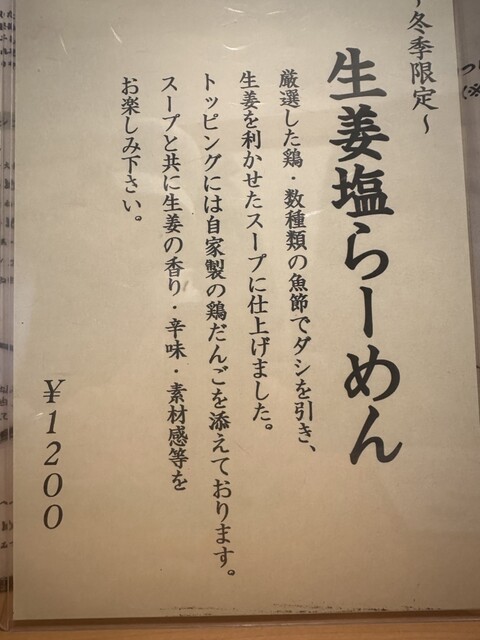 ～冬季限定～
生姜塩らーめん
厳選した鶏・数種類の魚節でダシを引き、
生姜を利かせたスープに仕上げました。
トッピングには自家製の鶏だんごを添えております。
スープと共に生姜の香り・辛味・素材感等を
お楽しみ下さい。
¥1200